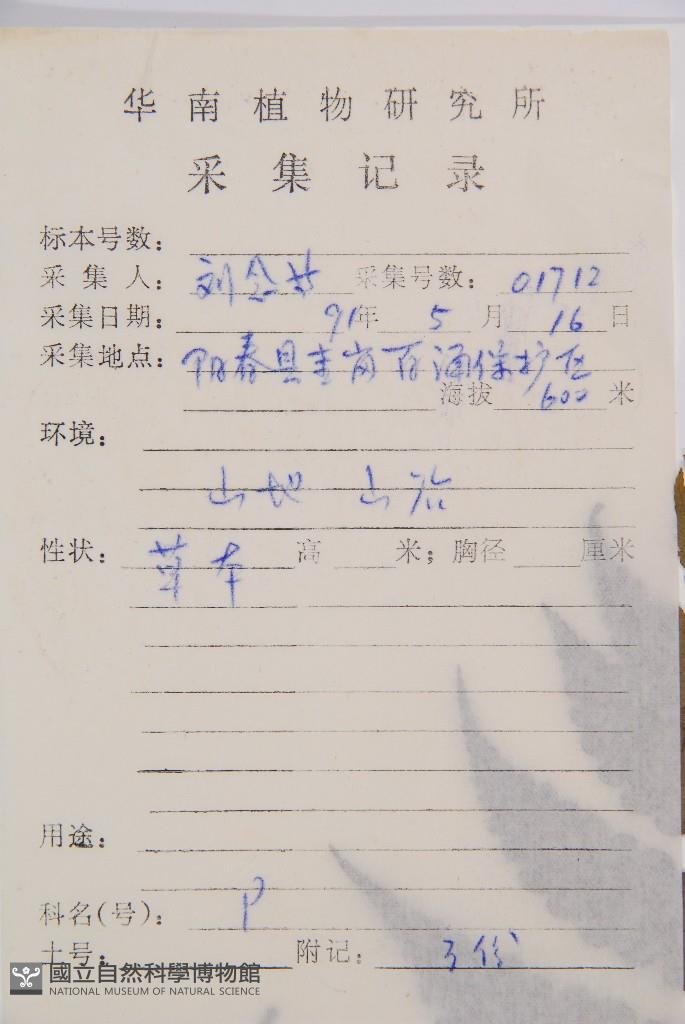 华南植物研究所
采集记录
标本号数：
采集人： 刘念 采集号数： 01712
采集日期： 91年 5 月 16 日
采集地点： 阳春县圭岗百涌保护区
海拔 600 米
环境：
山地 山
性状： 草本 高 米；胸径 厘米
用途：
科名(号)： P
土号： 附记： 3份
國立自然科學博物館
NATIONAL MUSEUM OF NATURAL SCIENCE